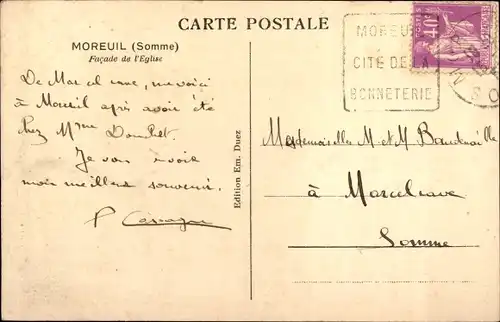 CARTE POSTALE
MOREUIL (Somme)
Façade de l'Eglise
De Marcelcave, me voici
à Moreuil après avoir été
chez Mme
Je vous envoie
mon meilleur souvenir.
Edition Em. Duez
MOREUIL
CITÉ DE LA
BONNETERIE
40c
Mesdemoiselles M et M
à Marcelcave
Somme